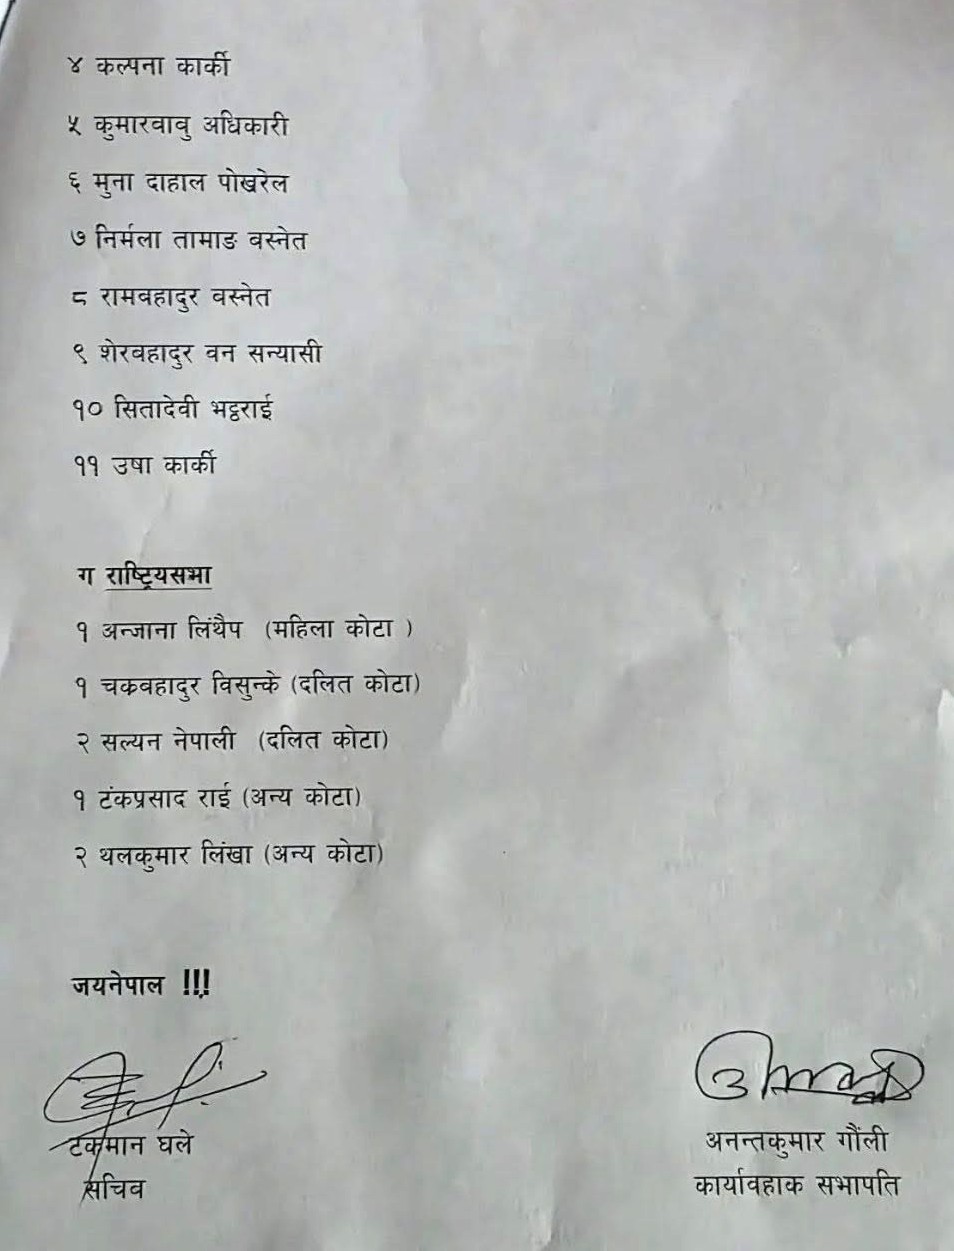 ४ कल्पना कार्की
५ कुमारवावु अधिकारी
६ मुना दाहाल पोखरेल
७ निर्मला तामाङ वस्नेत
८ रामवहादुर वस्नेत
९ शेरवहादुर वन सन्यासी
१० सितादेवी भट्टराई
११ उषा कार्की
ग राष्ट्रियसभा
१ अन्जाना लिंथैप (महिला कोटा )
१ चकवहादुर विसुन्के (दलित कोटा)
२ सल्यन नेपाली (दलित कोटा)
१ टंकप्रसाद राई (अन्य कोटा)
२ थलकुमार लिंखा (अन्य कोटा)
जयनेपाल !!!
टकमान घले
सचिव
अनन्तकुमार गौंली
कार्यावहाक सभापति